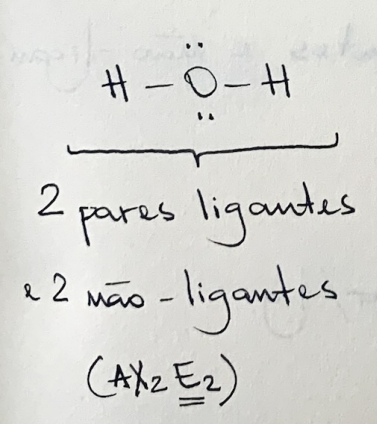 H – Ö̤ – H
2 pares ligantes
e 2 não-ligantes
(AX₂E₂)